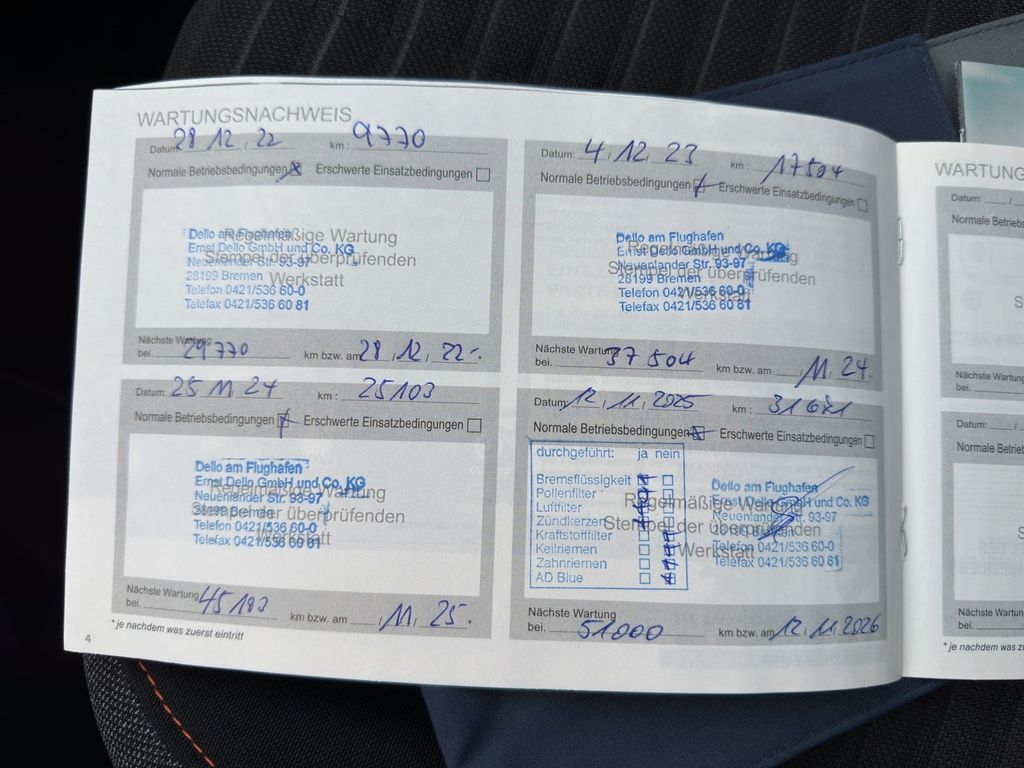 WARTUNGSNACHWEIS
Datum: 28 12, 22 km: 9770
Normale Betriebsbedingungen Erschwerte Einsatzbedingungen
Regelmäßige Wartung
Stempel der überprüfenden
Werkstatt
Dello am Flughafen
Ernst Dello GmbH und Co. KG
Neuenlander Str. 93-97
28199 Bremen
Telefon 0421/536 60-0
Telefax 0421/536 60 81
Nächste Wartung
bei. 29770 km bzw. am 28, 12, 22-.
Datum: 4, 12, 23 km: 17504
Normale Betriebsbedingungen Erschwerte Einsatzbedingungen
Regelmäßige Wartung
Stempel der überprüfenden
Werkstatt
Dello am Flughafen
Ernst Dello GmbH und Co. KG
Neuenlander Str. 93-97
28199 Bremen
Telefon 0421/536 60-0
Telefax 0421/536 60 81
Nächste Wartung
bei. 37504 km bzw. am , 11, 24.
Datum: 25 11 24 km: 25103
Normale Betriebsbedingungen Erschwerte Einsatzbedingungen
Regelmäßige Wartung
Stempel der überprüfenden
Werkstatt
Dello am Flughafen
Ernst Dello GmbH und Co. KG
Neuenlander Str. 93-97
28199 Bremen
Telefon 0421/536 60-0
Telefax 0421/536 60 81
Nächste Wartung
bei. km bzw. am , 11, 25.
Datum: 12, 11, 2025 km:
Normale Betriebsbedingungen Erschwerte Einsatzbedingungen
durchgeführt: ja nein
Bremsflüssigkeit
Pollenfilter
Luftfilter
Zündkerzen
Kraftstofffilter
Keilriemen
Zahnriemen
AD Blue
Regelmäßige Wartung
Stempel der überprüfenden
Werkstatt
Dello am Flughafen
Ernst Dello GmbH und Co. KG
Neuenlander Str. 93-97
28199 Bremen
Telefon 0421/536 60-0
Telefax 0421/536 60 81
Nächste Wartung
bei. 51000 km bzw. am 12, 11, 2026
* je nachdem was zuerst eintritt
4
WARTUNG
Datum: /
Normale Betriebsb
S
Nächste Wartung
bei.
Datum: /
Normale Betriebsb
S
Nächste Wartung
bei.
* je nachdem was zu